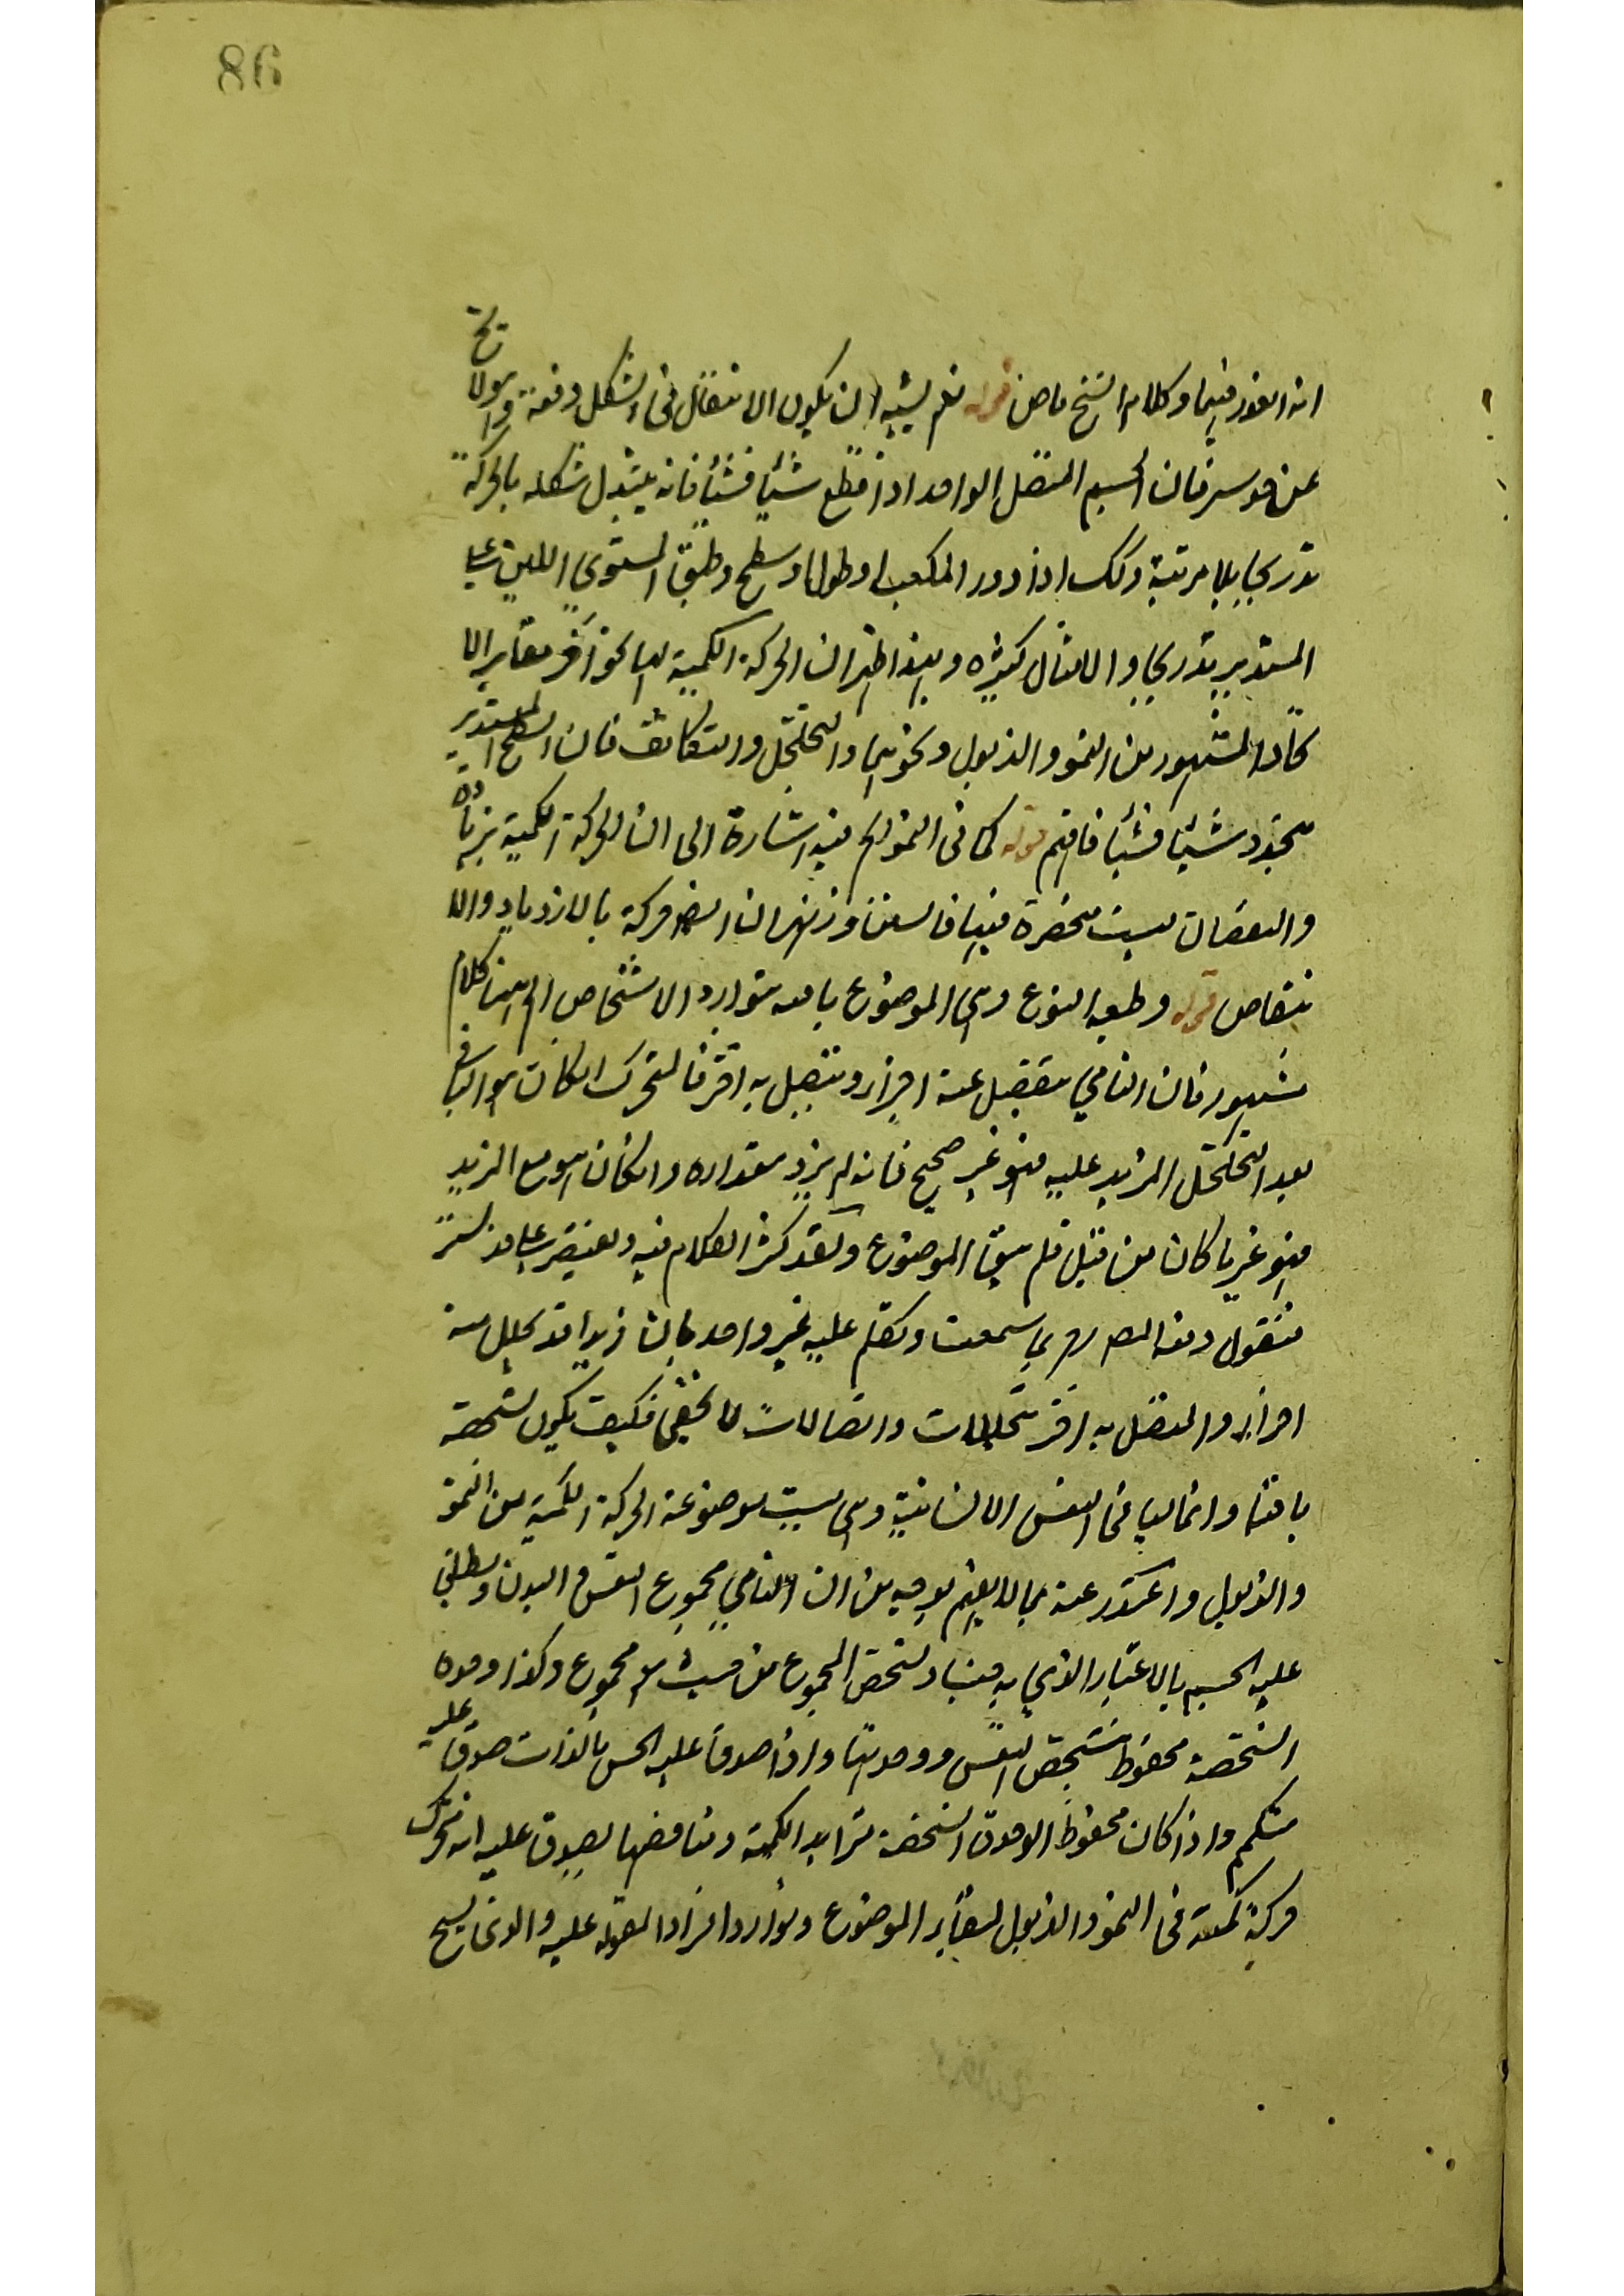 86
انه الفور فيها وكلام الشيخ ماض قوله نعم يشبه ان يكون الانتقال في الشكل دفعة وهو لا يخ
عن هوس فان الجسم المتصل الواحد اذا قطع شيئا فشيئا فانه يتبدل شكله بالحركة
تدريجا بلا مرتبة وكك اذا دور المكعب او طول او سطح وطبق المستوي اللين على
المستدير تدريجا والامثال كثيره وبهذا ظهر ان الحركة الكمية لها نحو آخر مغاير الا
نحاد المشهور من النمو والذبول ونحوهما والتخلخل والتكاثف فان السطح المستدير
يتجدد شيئا فشيئا فافهم قوله كما في النمو الخ فيه اشارة الى ان الحركة الكمية بزيادة
والنقصان ليست منحصرة فيها فالسمن والهزال ايضا حركة بالازدياد والا
نتقاص قوله وطبيعة النوع وهي الموضوع باقية بتوارد الاشخاص الخ ههنا كلام
مشهور فان النامي ينفصل عنه اجزاء ويتصل به اخر فالمتحرك ان كان هو الباقي
بعد التخلخل المزيد عليه فهو غير صحيح فانه لم يزد مقداره وان كان هو مع المزيد
فهو غير ما كان من قبل فلم يبق الموضوع ولقد كثر الكلام فيه ونقتصر على قدر يسير
فنقول دفعه المصنف بما سمعت وتكلم عليه غير واحد بان زيدا قد تحلل منه
اجزاء والمتصل به اخر بتحليلات واتصالات لا تخفى فكيف يكون تشخصه
باقيا وانما الباقي النفس الانسانية وهي ليست موضوعة الحركة الكمية من النمو
والذبول واعتذر عنه بما لا يفهم بوجه من ان النامي مجموع النفس والبدن ويطلق
عليه الجسم بالاعتبار الذي به جنسا وتشخص المجموع من حيث هو مجموع وكذا وحدة
الشخصية محفوظ بتشخص النفس ووحدتها واذا صدق عليه الجسم بالذات صدق عليه
متكمم واذا كان محفوظ الوحدة الشخصية تتزايد الكمية وتناقصها يصدق عليه انه متحرك
حركة كمية في النمو والذبول لبقاء الموضوع وتوارد افراد المقولة عليه والذي يسح